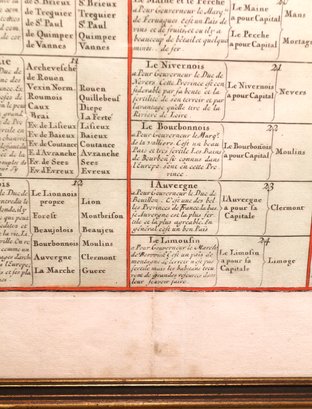 S.Brieux
Treguier
S.t Paul
de Quimper
Vannes
S.Brieux
Treguier
S.t Paul
de Quimper
Vannes
Le Maine et le Perche
a Pour Gouverneur le Marq.
de
vins et de fruits, et il y a
Beaucoup de
mines de fer
Le Maine
a pour Capital
Le Perche
a pour Capital
Mans
Mortag
11
Archevesché
de Rouen
Vexin Norm.
Roumois
Caux
Brai
Ev. de Lisieux
Ev. de Baieux
Ev. de Coutance
Ev. d'Avranche
Ev. de Sees
Ev. d'Evreux
Rouen
Quillebeuf
Diepe
La Ferté
Lisieux
Baieux
Coutance
Avranche
Sees
Evreux
Le Nivernois
a Pour Gouverneur le Duc de
Nevers Cette Province est con
siderable par sa
fertilité de son terroir et par
l'avantage quelle tire de la
Riviere de Loire
21
Le Nivernois
a pour Capital
Nevers
Le Bourbonnois
a Pour Gouverneur le Marq.
de la valliere C'est un beau
Pais et tres fertile Les Bains
de Bourbon si connus dans
l'Europe sont en cette Pro
vince
22
Le Bourbonois
a pour Capital
Moulins
12
Le Lionnois
propre
Forest
Beaujolois
Bourbonnois
Auvergne
La Marche
Lion
Montbrison
Beaujeu
Moulins
Clermont
Guere
l'Auvergne
a Pour Gouverneur le Duc de
Bouillon. C'est une des bel
les Provinces de France la bas
se Auvergne est la plus fer
tile et la plus agreable. En
général c'est un bon Pais
23
l'Auvergne
a pour sa
Capitale
Clermont
Le Limousin
a Pour Gouverneur le Marechal
de Berwick C'est un païs de
montagne le terroir n'est pas
fertile mais les habitans trou
vent de grandes resources dans
leur savoir faire.
24
Le Limosin
a pour sa
Capitale
Limoge